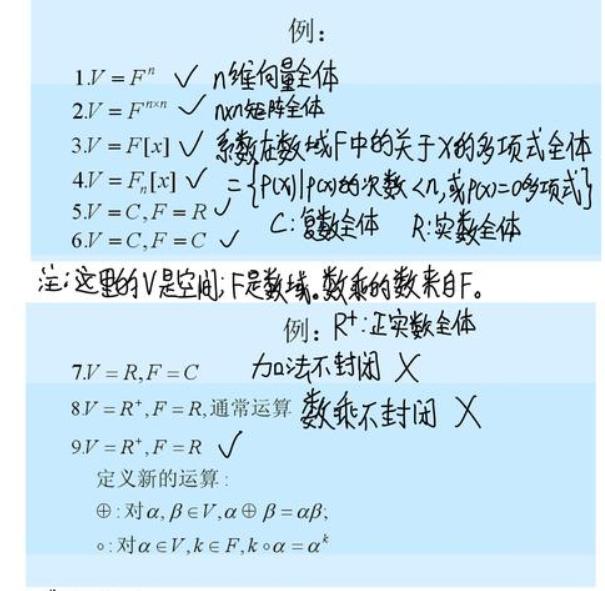 例：
1.V = Fⁿ ✓ n维向量全体
2.V = Fⁿˣⁿ ✓ n×n矩阵全体
3.V = F[x] ✓ 系数在数域F中的关于x的多项式全体
4.V = Fₙ[x] ✓ = {P(x)|p(x)的次数<n,或p(x)=0多项式}
5.V = C, F = R ✓
6.V = C, F = C ✓ C:复数全体 R:实数全体
注:这里的V是空间;F是数域。数乘的数来自F。
例：R⁺:正实数全体
7.V = R, F = C 加法不封闭 ✗
8.V = R⁺, F = R, 通常运算 数乘不封闭 ✗
9.V = R⁺, F = R ✓
定义新的运算:
⊕:对α, β∈V, α⊕β = αβ;
∘:对α∈V, k∈F, k∘α = αᵏ